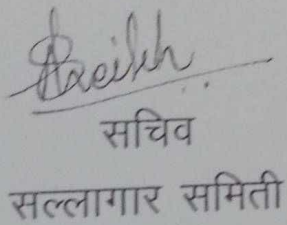 सचिव
सल्लागार समिती